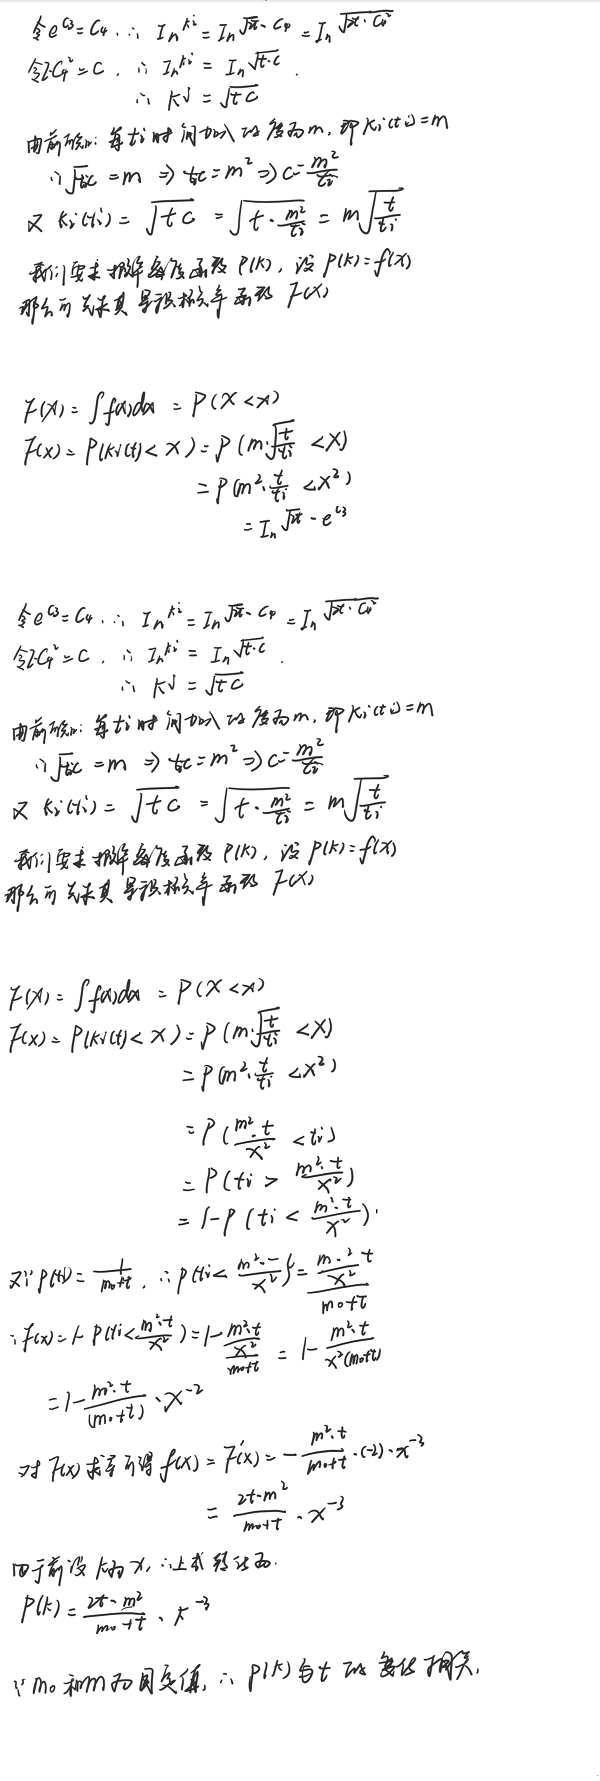 令e^{C3}=C4. ∴ In^{ki}=In^{√2t·C4}=In^{√2t·C4²}
令2C4²=C. ∴ In^{ki}=In^{√t·C}.
∴ kj=√tC
由前可知: 每ti时间加入的度为m, 即Ki(ti)=m
∵√tiC=m ⇒ tiC=m² ⇒ C=m²/ti
又 Ki(ti)=√tC=√(t·m²/ti)=m√(t/ti)
我们要求概率密度函数P(k), 设P(k)=f(x)
那么可先求其累积概率函数F(x)
F(x)=∫f(x)dx=P(X<x)
F(x)=P(ki(t)<x)=P(m·√(t/ti)<x)
=P(m²·t/ti<x²)
=In^{√2t}·e^{C3}
令e^{C3}=C4. ∴ In^{ki}=In^{√2t·C4}=In^{√2t·C4²}
令2C4²=C. ∴ In^{ki}=In^{√t·C}.
∴ kj=√tC
由前可知: 每ti时间加入的度为m, 即Ki(ti)=m
∵√tiC=m ⇒ tiC=m² ⇒ C=m²/ti
又 Ki(ti)=√tC=√(t·m²/ti)=m√(t/ti)
我们要求概率密度函数P(k), 设P(k)=f(x)
那么可先求其累积概率函数F(x)
F(x)=∫f(x)dx=P(X<x)
F(x)=P(ki(t)<x)=P(m·√(t/ti)<x)
=P(m²·t/ti<x²)
=P(m²·t/x²<ti)
=P(ti>m²·t/x²)
=1-P(ti<m²·t/x²).
又∵P(ti)=1/(m0+t), ∴P(ti<m²·t/x²)=(m²·t/x²)/(m0+t)
∴F(x)=1-P(ti<m²·t/x²)=1-(m²·t/x²)/(m0+t)=1-m²·t/(x²(m0+t))
=1-m²·t/(m0+t)·x^{-2}
对F(x)求导可得f(x)=F'(x)=-m²·t/(m0+t)·(-2)·x^{-3}
=2t·m²/(m0+t)·x^{-3}
由于前设k为x, ∴上式转化为.
P(k)=2t·m²/(m0+t)·k^{-3}
∵m0和m为固定值, ∴P(k)与t的变化相关.